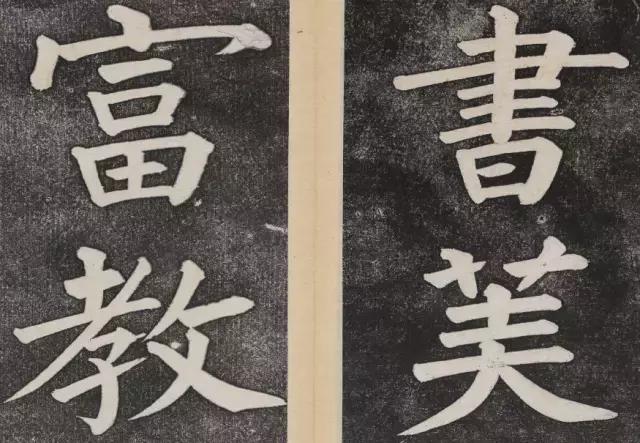 書美
富教